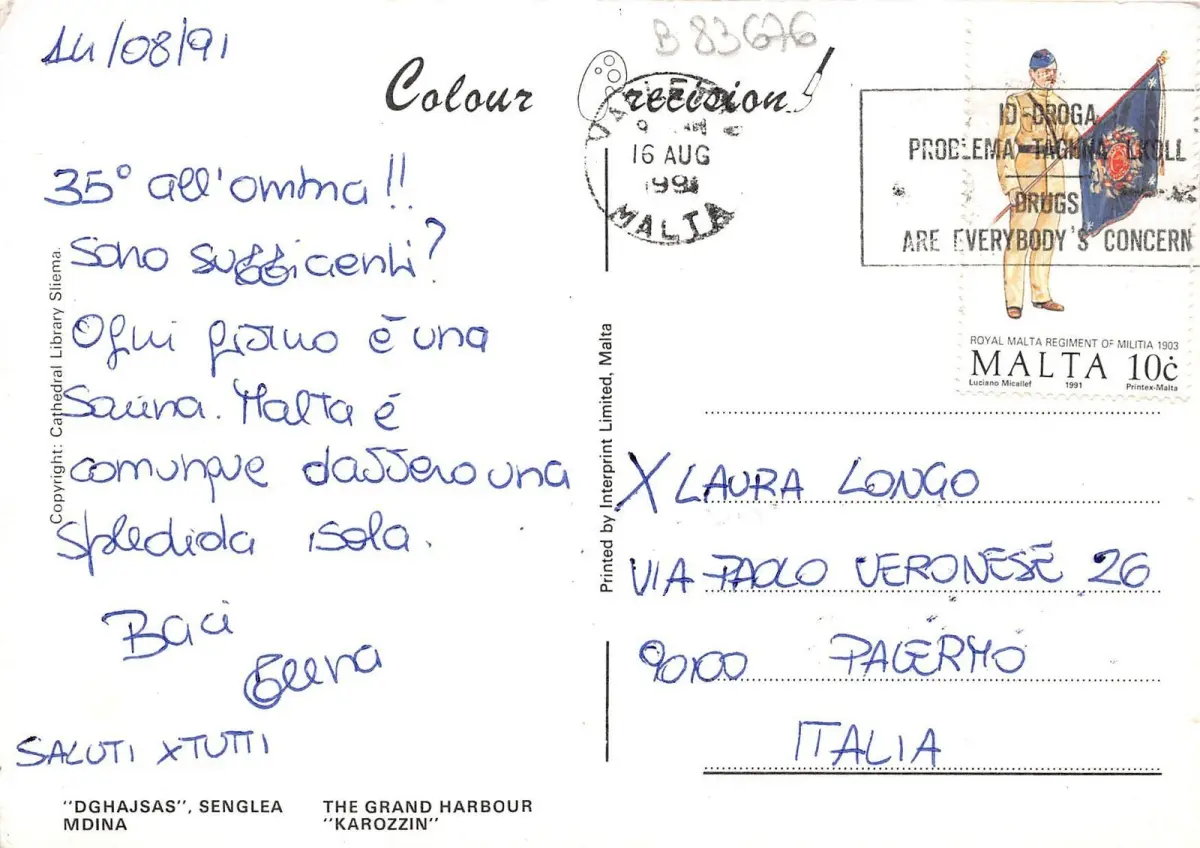 14/08/91
Colour Precision
B 83676
35° all'ombra!!
Sono sufficienti?
Ogni giorno è una
Sauna. Malta è
comunque davvero una
spledida isola.
Baci
Elena
SALUTI X TUTTI
"DGHAJSAS", SENGLEA THE GRAND HARBOUR
MDINA "KAROZZIN"
Copyright: Cathedral Library Sliema.
Printed by Interprint Limited, Malta
VALLETTA
16 AUG
1991
MALTA
ID-DROGA
PROBLEMA TAGĦNA LKOLL
DRUGS
ARE EVERYBODY'S CONCERN
ROYAL MALTA REGIMENT OF MILITIA 1903
MALTA 10ċ
Luciano Micallef 1991 Printex-Malta
X LAURA LONGO
VIA PAOLO VERONESE 26
90100 PALERMO
ITALIA